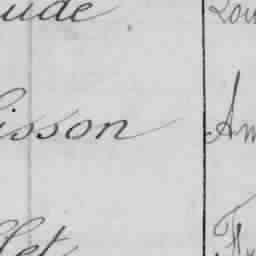 ude Lou
isson Am
let